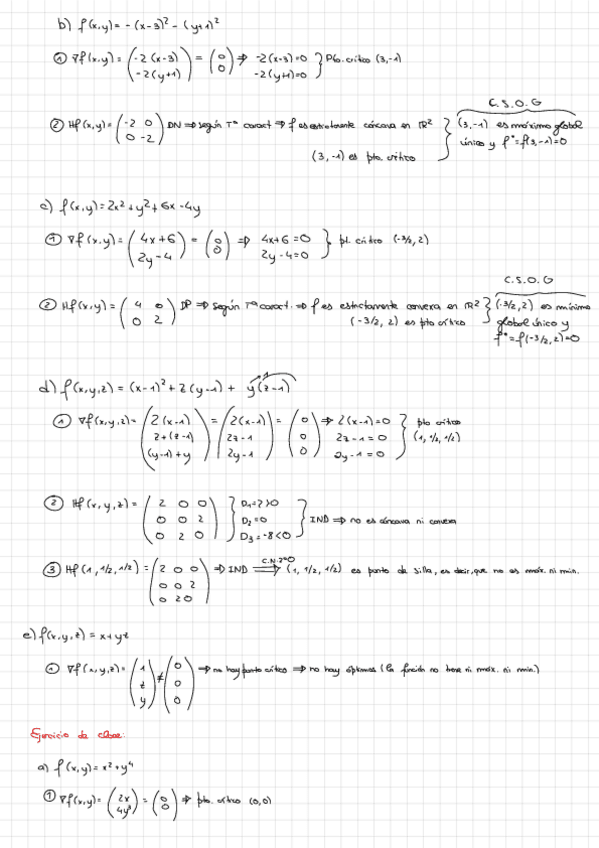 b) f(x,y) = -(x-3)² - (y+1)²
① ∇f(x,y) = (-2(x-3) ; -2(y+1)) = (0 ; 0) ⇒ -2(x-3)=0 ; -2(y+1)=0 } Pto. crítico (3,-1)
C.S.O.G
② Hf(x,y) = (-2 0 ; 0 -2) DN ⇒ según Tª caract ⇒ f es estrictamente cóncava en ℝ² } (3,-1) es máximo global
(3,-1) es pto. crítico } único y f* = f(3,-1)=0
c) f(x,y) = 2x² + y² + 6x - 4y
① ∇f(x,y) = (4x+6 ; 2y-4) = (0 ; 0) ⇒ 4x+6=0 ; 2y-4=0 } pt. crítico (-3/2, 2)
C.S.O.G
② Hf(x,y) = (4 0 ; 0 2) DP ⇒ según Tª caract. ⇒ f es estrictamente convexa en ℝ² } (-3/2, 2) es mínimo
(-3/2, 2) es pto crítico } global único y
f* = f(-3/2, 2) = 0
d) f(x,y,z) = (x-1)² + z(y-1) + y(z-1)
① ∇f(x,y,z) = (2(x-1) ; z+(z-1) ; (y-1)+y) = (2(x-1) ; 2z-1 ; 2y-1) = (0 ; 0 ; 0) ⇒ 2(x-1)=0 ; 2z-1=0 ; 2y-1=0 } pto crítico (1, 1/2, 1/2)
② Hf(x,y,z) = (2 0 0 ; 0 0 2 ; 0 2 0) } D₁=2>0 ; D₂=0 ; D₃=-8<0 } IND ⇒ no es cóncava ni convexa
③ Hf(1, 1/2, 1/2) = (2 0 0 ; 0 0 2 ; 0 2 0) ⇒ IND C.N.2ºO ⇒ (1, 1/2, 1/2) es punto de silla, es decir, que no es máx. ni min.
e) f(x,y,z) = x + yz
① ∇f(x,y,z) = (1 ; z ; y) ≠ (0 ; 0 ; 0) ⇒ no hay punto crítico ⇒ no hay óptimos (la función no tiene ni máx. ni min.)
Ejercicio de clase:
a) f(x,y) = x² + y⁴
① ∇f(x,y) = (2x ; 4y³) = (0 ; 0) ⇒ pto. crítico (0,0)